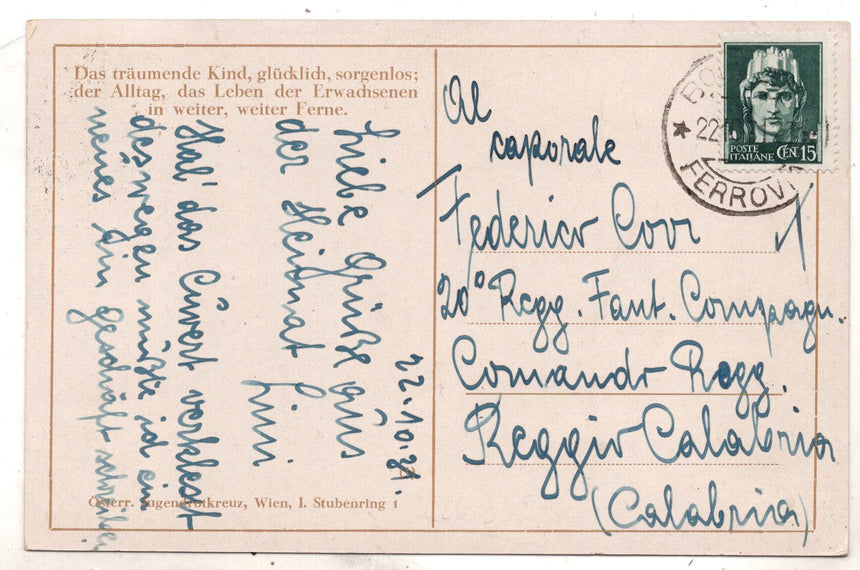 Das träumende Kind, glücklich, sorgenlos;
der Alltag, das Leben der Erwachsenen
in weiter, weiter Ferne.
22.10.31.
Liebe Grüße aus
der Heimat
Hab' das Cuvert verklest
deswegen müßte ich ein
neues
Österr. Jugendrotkreuz, Wien, I. Stubenring 1
Al
caporale
Federico Covi
20° Regg. Fant. Compagn.
Comando Regg.
Reggio Calabria
(Calabria)
POSTE
ITALIANE CEN. 15
22
FERROVI